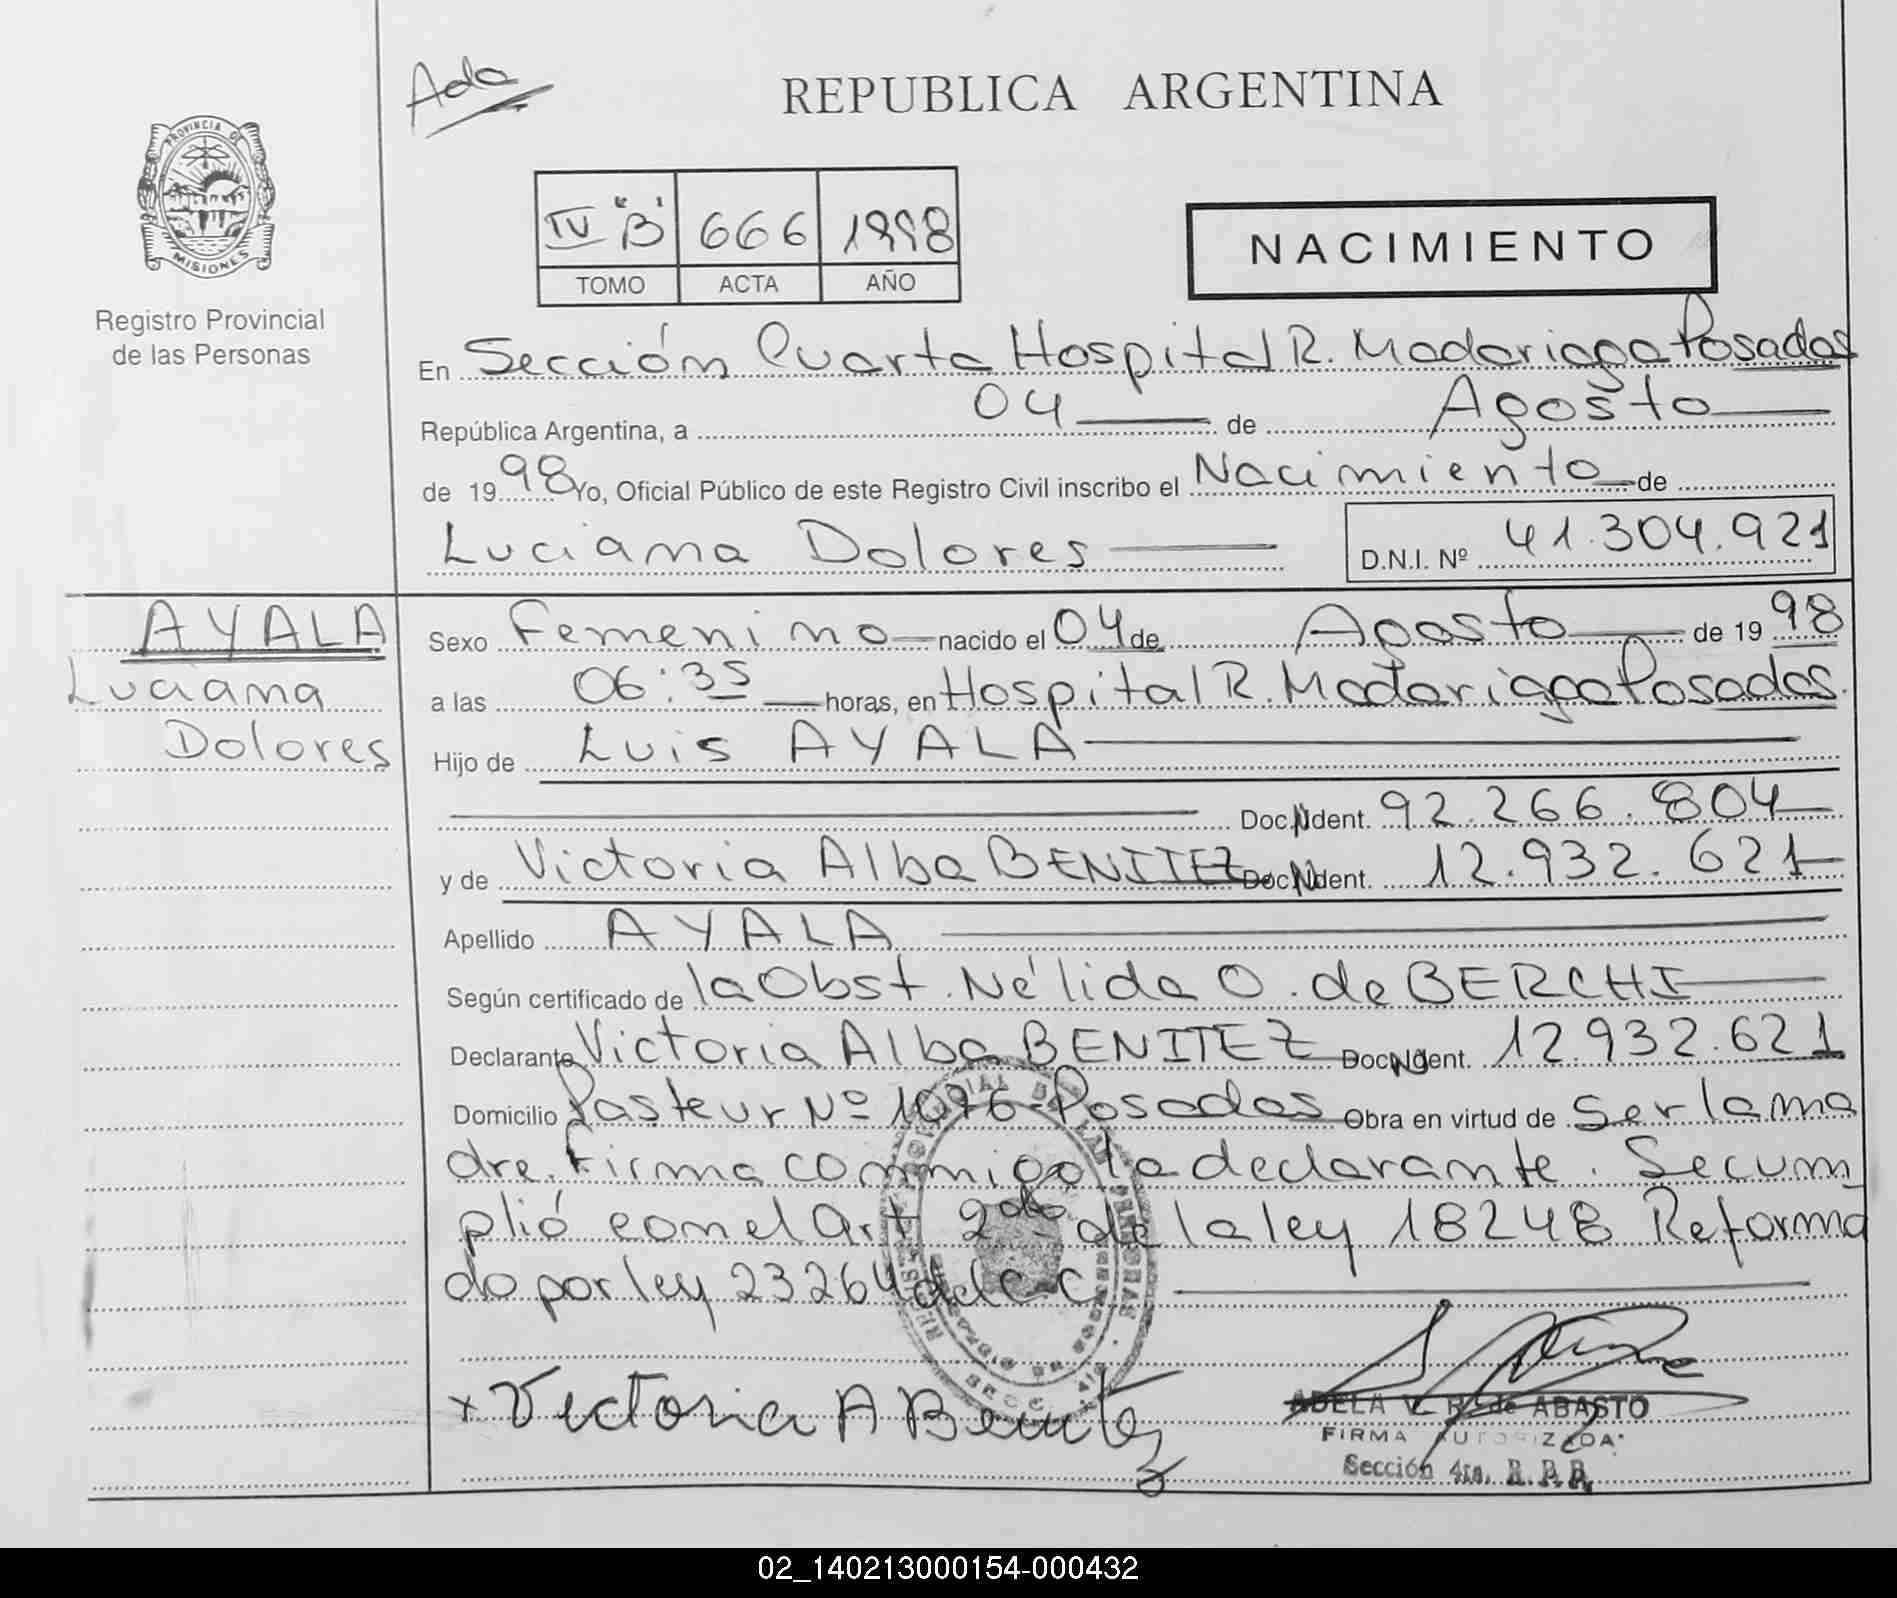 Ada
REPUBLICA ARGENTINA
PROVINCIA DE
MISIONES
Registro Provincial
de las Personas
IV "B" 666 1998
TOMO ACTA AÑO
NACIMIENTO
En Sección Cuarta Hospital R. Madariaga Posadas
República Argentina, a 04 de Agosto
de 1998 Yo, Oficial Público de este Registro Civil inscribo el Nacimiento de
Luciana Dolores D.N.I. Nº 41.304.921
AYALA
Luciana
Dolores
Sexo Femenino nacido el 04 de Agosto de 1998
a las 06:35 horas, en Hospital R. Madariaga Posadas.
Hijo de Luis AYALA
Doc. Ident. 92.266.804
y de Victoria Alba BENITEZ Doc. Ident. 12.932.621
Apellido AYALA
Según certificado de la Obst. Nélida O. de BERCHI
Declarante Victoria Alba BENITEZ Doc. Ident. 12.932.621
Domicilio Pasteur Nº 1076-Posadas Obra en virtud de Ser la ma
dre. Firma conmigo la declarante. Se cum
plió con el Art 2do de la ley 18248 Reforma
do por ley 23264 del C.C.
x Victoria A Benitez
ADELA V. R. de ABASTO
FIRMA AUTORIZADA
Sección 4ta. R. P. P.
02_140213000154-000432